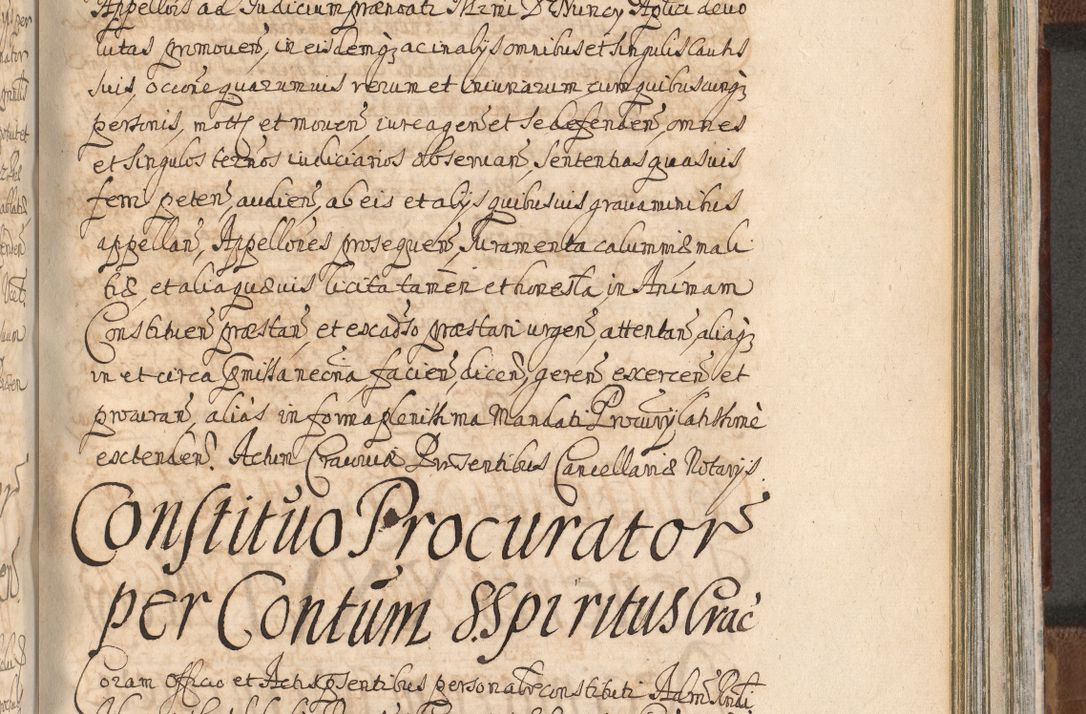 Appellõis ad Iudicium prænoati Mrmi D Nuncy Aplici devo
lutas promoueñ, in eisdemq; ac in alijs omnibus et singulis causis
suis, occõne quarumuis rerum et iniuriarum cum quibuscunq;
personis, mott et moueñ, iure ageñ et se defendeñ, omnes
et singulos termos iudiciarios observañ, sententias quasuis
ferri peteñ, audieñ, ab eis et alijs quibusuis gravaminibus
appellañ, Appellões prosequeñ, Iuramenta calumniæ mali
tiæ, et alia quæuis licita tameñ et honesta, in Animam
Constitueñ præstañ, et ex adso præstari urgeñ, attentañ, aliaq;
in et circa pmissa necña, facieñ, diceñ, gereñ exerceñ et
procurañ, aliàs in forma plenissima Mandati Procurÿ latissimè
extendeñ. Actum Cracoviæ Præsentibus Cancellariæ Notarijs.
Constituo Procurator
per Contum S. Spiritus Crac
Coram Officio et Actis psentibus personalr constituti Adm Rndi